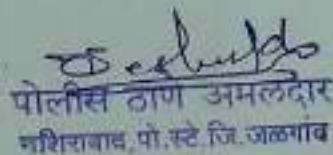 पोलीस ठाणे अमलदार
नशिराबाद, पो.स्टे. जि. जळगांव